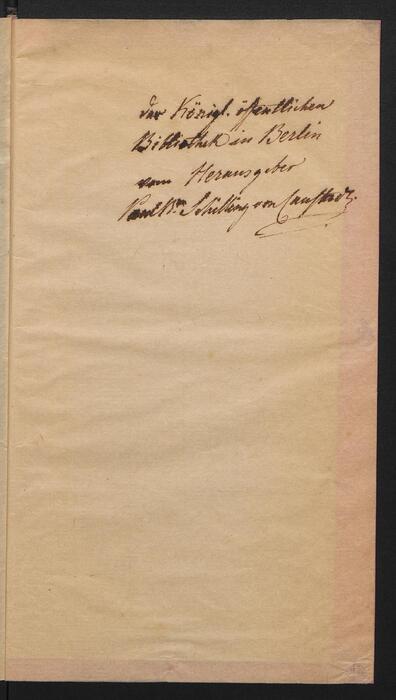 der Königl. öffentlichen
Bibliothek in Berlin
vom Herausgeber
Paul Bn Schilling von Canstadt.